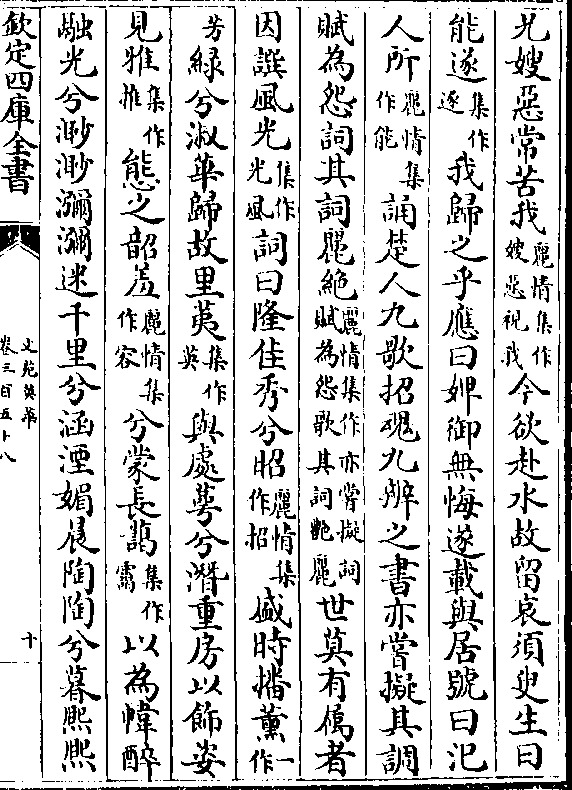 兄嫂惡常苦我麗情集作嫂惡視我今欲赴水故留哀須臾生曰
能遂集作逐我歸之乎應曰婢御無悔遂載與居號曰汜
人所麗情集作能誦楚人九歌招魂九辯之書亦嘗擬其調
賦為怨詞其詞麗絕麗情集作亦嘗擬詞賦為怨歌其詞艷麗世莫有屬者
因譔風光集作光風詞曰隆佳秀兮昭麗情集作招盛時播薰一作
芳綠兮淑華歸故里荑集作英與處萼兮潛重房以飾姿
見雅集作推態之韶羞麗情集作容兮蒙長藹集作靄以為幃醉
融光兮渺渺瀰瀰迷千里兮涵湮媚晨陶陶兮暮熙熙
欽定四庫全書
文苑英華
卷三百五十八
十